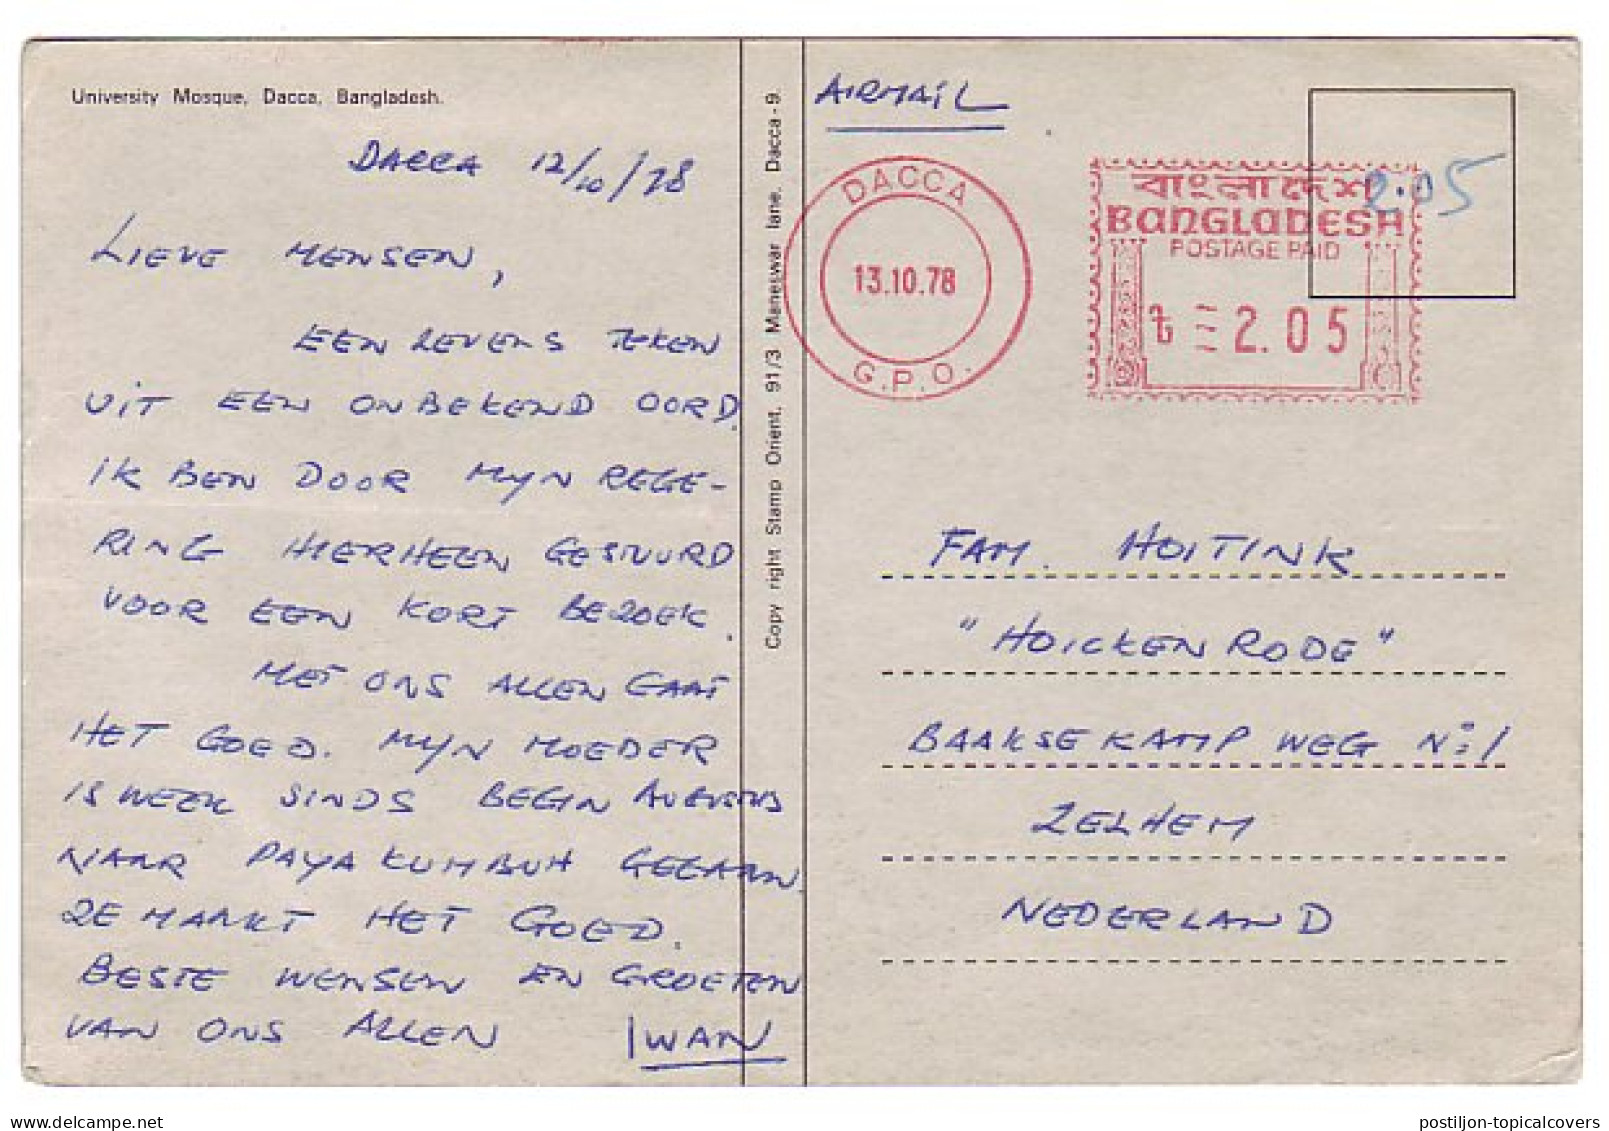 University Mosque, Dacca, Bangladesh.
DACCA 12/10/78
LIEVE MENSEN,
EEN LEVENS TEKEN
UIT EEN ONBEKEND OORD.
IK BEN DOOR MYN REGE-
RING HIERHEEN GESTUURD
VOOR EEN KORT BEZOEK.
MET ONS ALLEN GAAT
HET GOED. MYN MOEDER
IS WEER SINDS BEGIN AUGUSTUS
NAAR PAYAKUMBUH GEGAAN.
ZE MAAKT HET GOED.
BESTE WENSEN EN GROETEN
VAN ONS ALLEN IWAN
Copy right Stamp Orient, 91/3 Maneswar lane. Dacca-9.
AIRMAIL
DACCA
13.10.78
G.P.O.
বাংলাদেশ
BANGLADESH
POSTAGE PAID
৳ 2.05
2.05
FAM. HOITINK
"HOICKENRODE"
BAAKSEKAMPWEG No: 1
ZELHEM
NEDERLAND
postiljon-topicalcovers